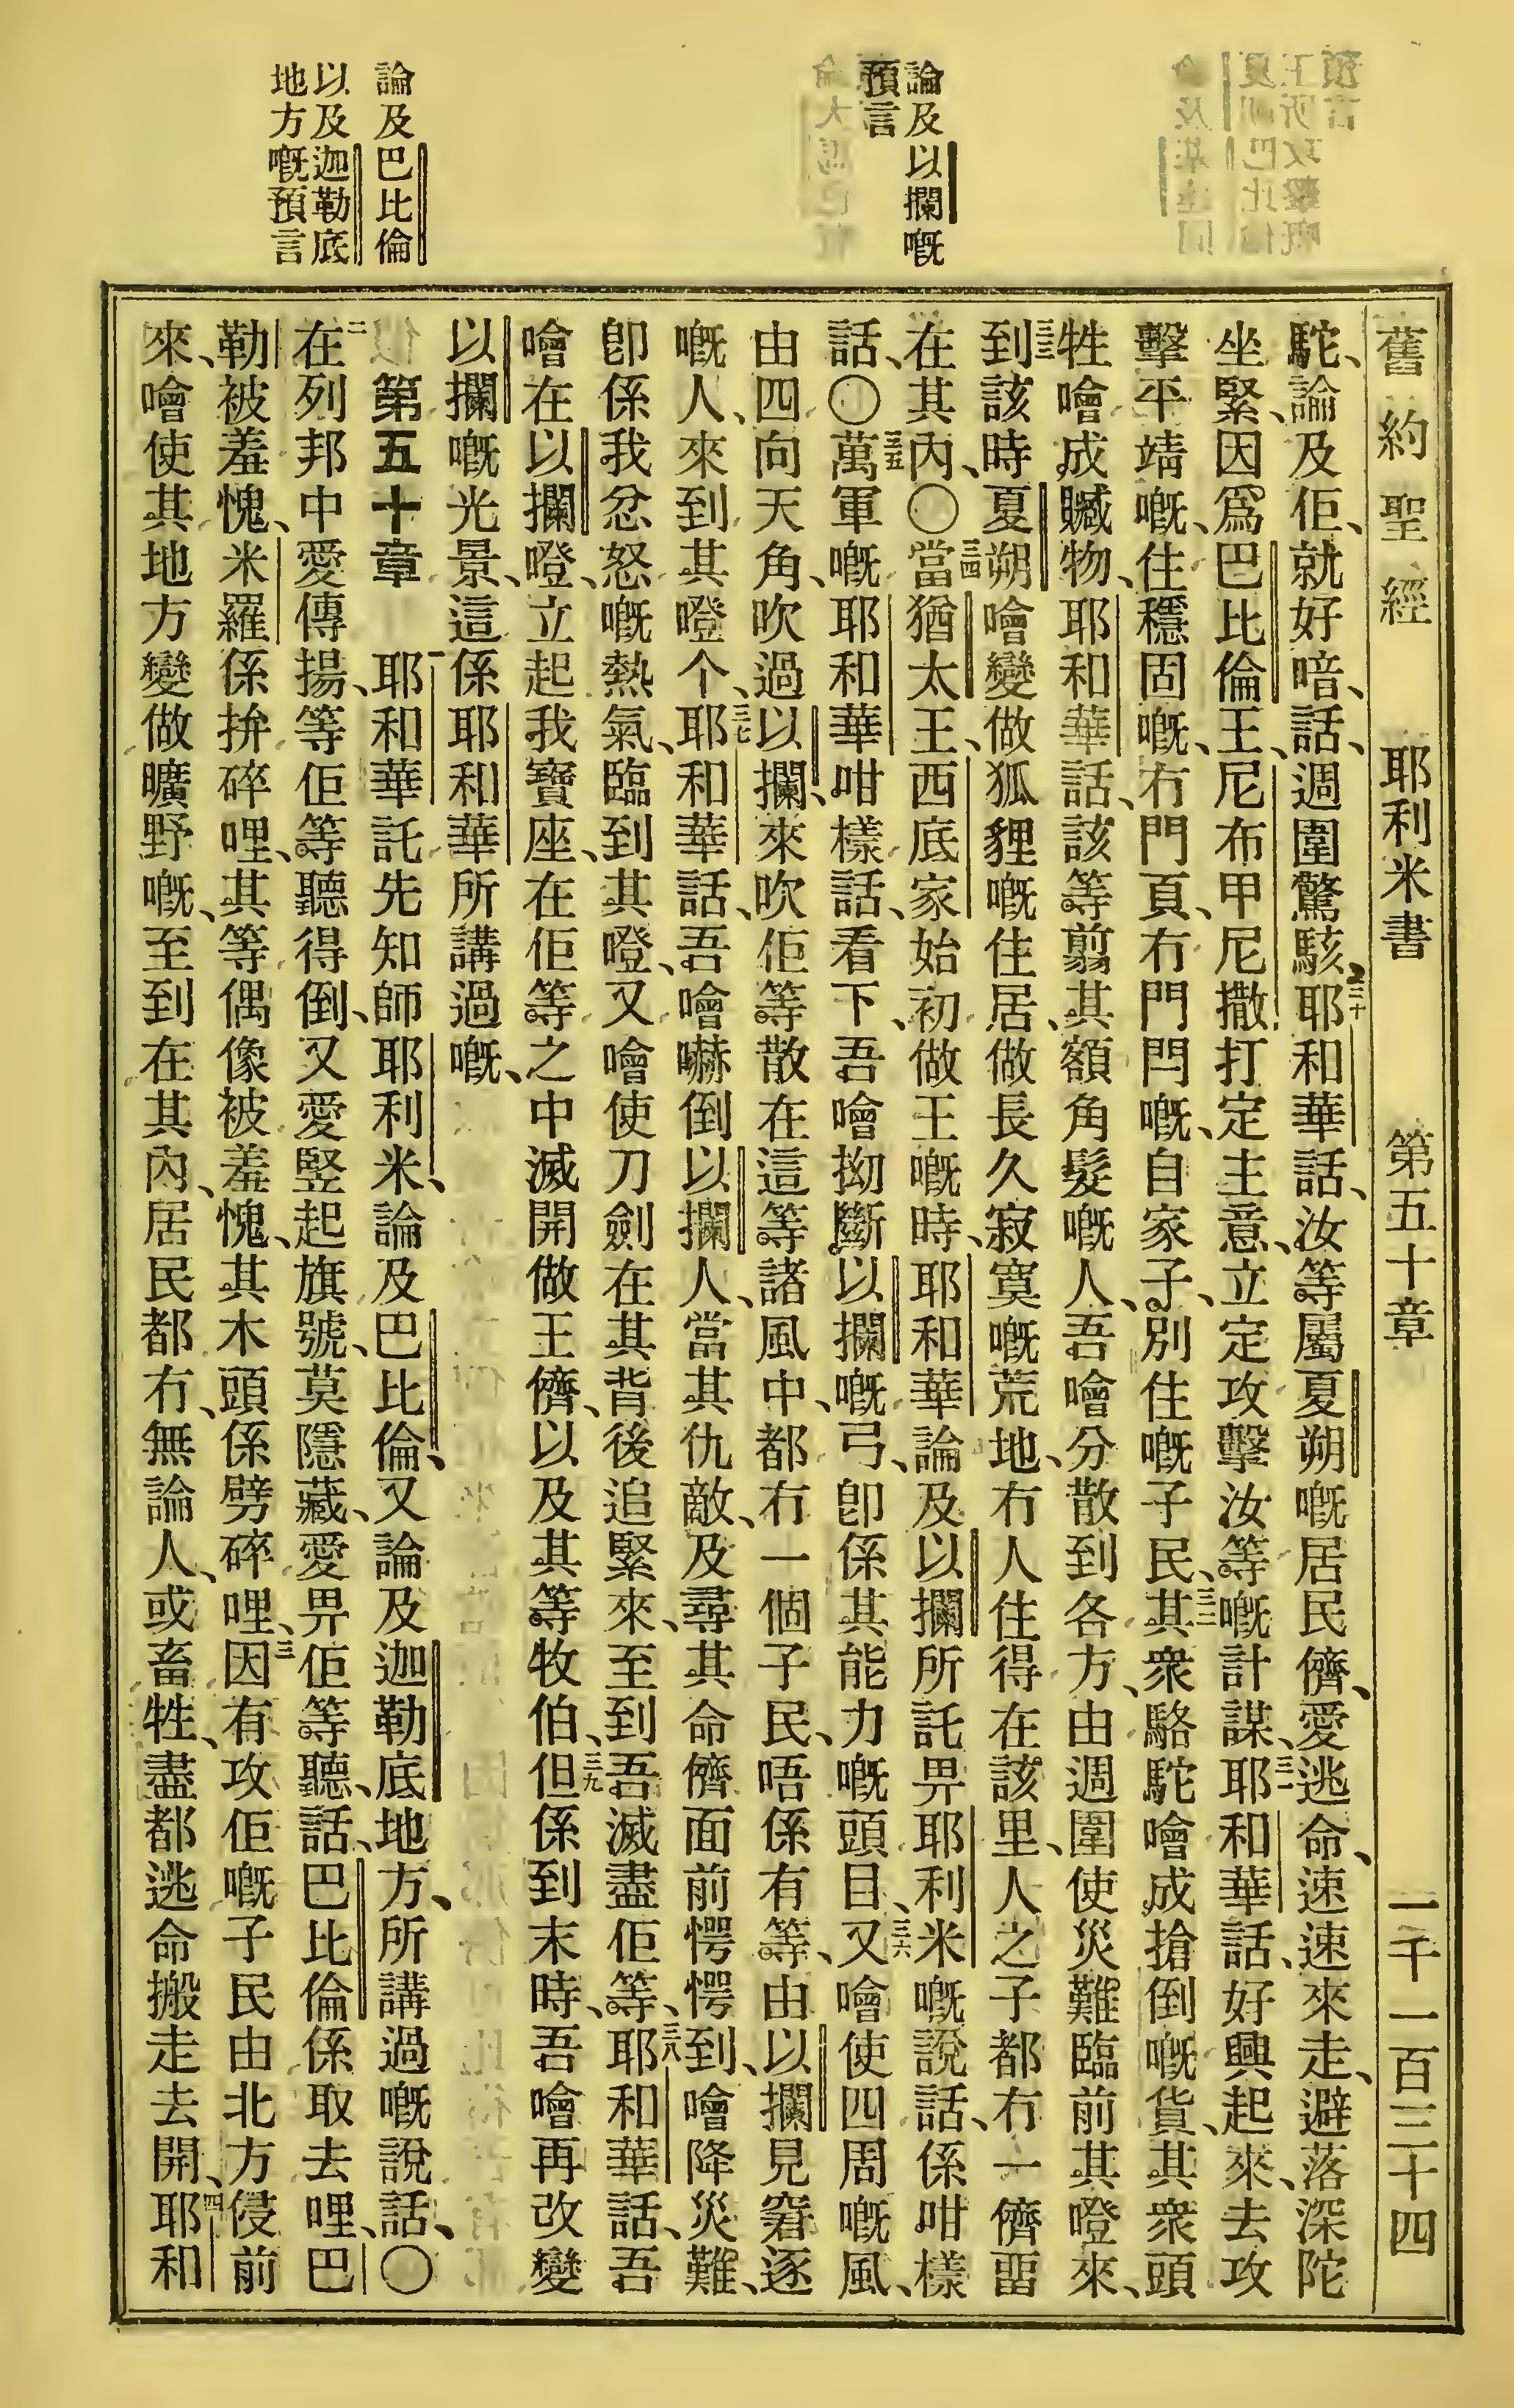 舊約聖經 耶利米書 第五十章 一千一百三十四
論及以攔嘅
預言
論及巴比倫
以及迦勒底
地方嘅預言
駝、論及佢、就好喑、話、週圍驚駭、三十耶和華話、汝等屬夏朔嘅居民儕、愛逃命、速速來走、避落深陀
坐緊、因爲巴比倫王、尼布甲尼撒、打定主意、立定攻擊汝等嘅計謀、三一耶和華話、好興起來、去攻
擊平靖嘅、住穩固嘅、冇門頁、冇門閂嘅、自家子、別住嘅子民、三二其衆駱駝噲成搶倒嘅貨、其衆頭
牲噲成贓物、耶和華話、該等翦其額角髮嘅人、吾噲分散到各方、由週圍使災難臨前其噔來、
三三到該時、夏朔噲變做狐貍嘅住居、做長久寂寞嘅荒地、冇人住得在該里、人之子都冇一儕畱
在其內、〇三四當猶太王、西底家、始初做王嘅時、耶和華論及以攔所託畀耶利米嘅說話、係咁樣
話、〇三五萬軍嘅耶和華咁樣話、看下、吾噲拗斷以攔嘅弓、卽係其能力嘅頭目、三六又噲使四周嘅風、
由四向天角、吹過以攔、來吹佢等散在這等諸風中、都冇一個子民、唔係有等、由以攔見窘逐
嘅人、來到其噔个、三七耶和華話、吾噲嚇倒以攔人、當其仇敵、及尋其命儕面前愕愕到、噲降災難、
卽係我忿怒嘅熱氣、臨到其噔、又噲使刀劍在其背後追緊來、至到吾滅盡佢等、三八耶和華話、吾
噲在以攔噔、立起我寶座、在佢等之中滅開做王儕、以及其等牧伯、三九但係到末時、吾噲再改變
以攔嘅光景、這係耶和華所講過嘅、
第五十章 一耶和華託先知師耶利米、論及巴比倫、又論及迦勒底地方、所講過嘅說話、〇
二在列邦中愛傳揚、等佢等聽得倒、又愛竪起旗號、莫隱藏、愛畀佢等聽、話、巴比倫係取去哩、巴
勒被羞愧、米羅係拚碎哩、其等偶像被羞愧、其木頭係劈碎哩、三因有攻佢嘅子民由北方侵前
來、噲使其地方變做曠野嘅、至到在其內、居民都冇、無論人、或畜牲、盡都逃命搬走去開、四耶和